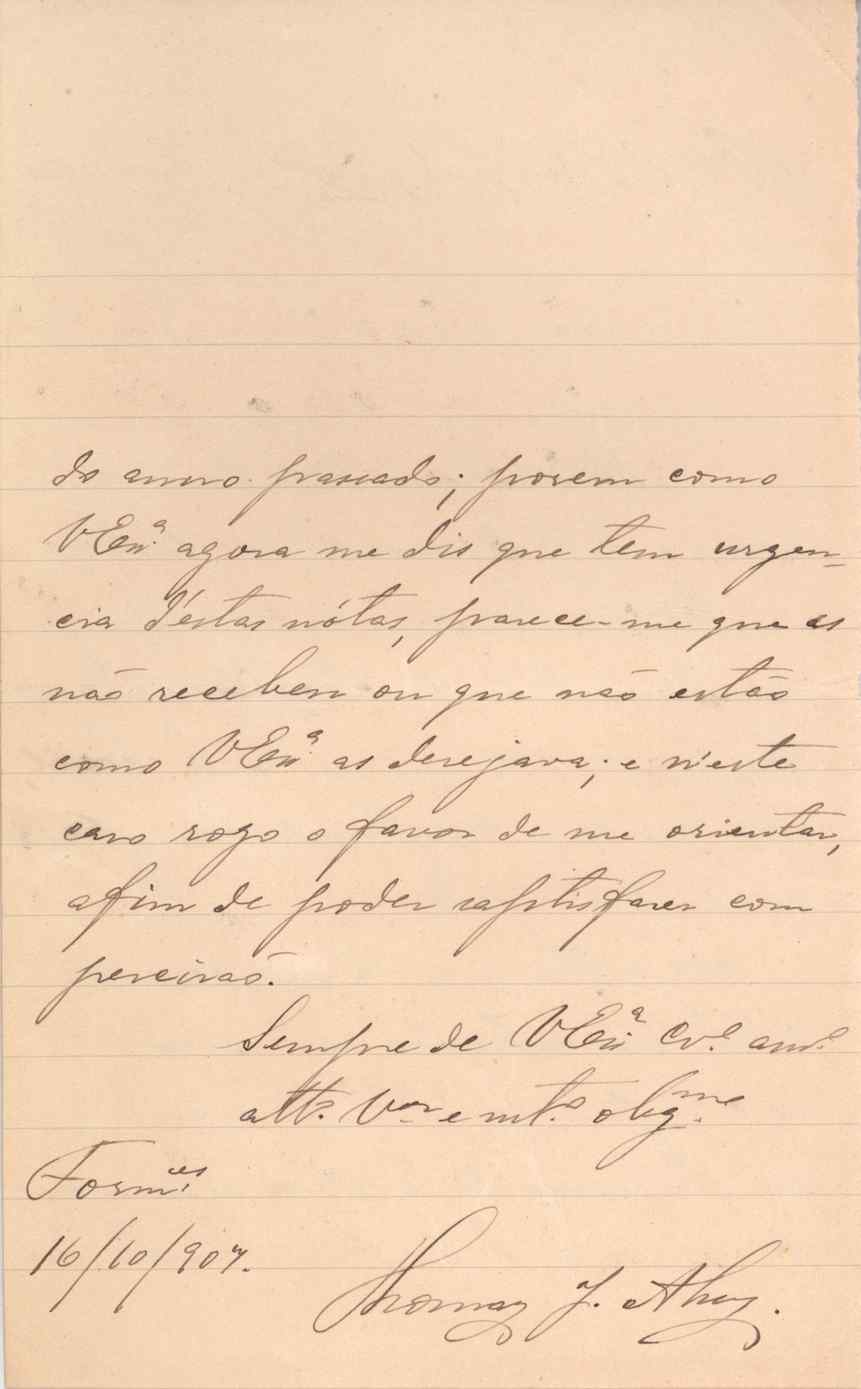 do anno passado; porem como
VExª. agora me dis que tem urgen-
cia d'éstas nótas, parece-me que as
não recebeu ou que não estão
como VExª. as desejava; e n'este
caso rogo o favor de me orientar,
afim de poder satisfazer com
percizaõ.
Sempre de VExª. Cr.º am.º
att.º V.or e mt.º obg.mo
Form.es
16/10/907.
Thomaz J. Alvez.